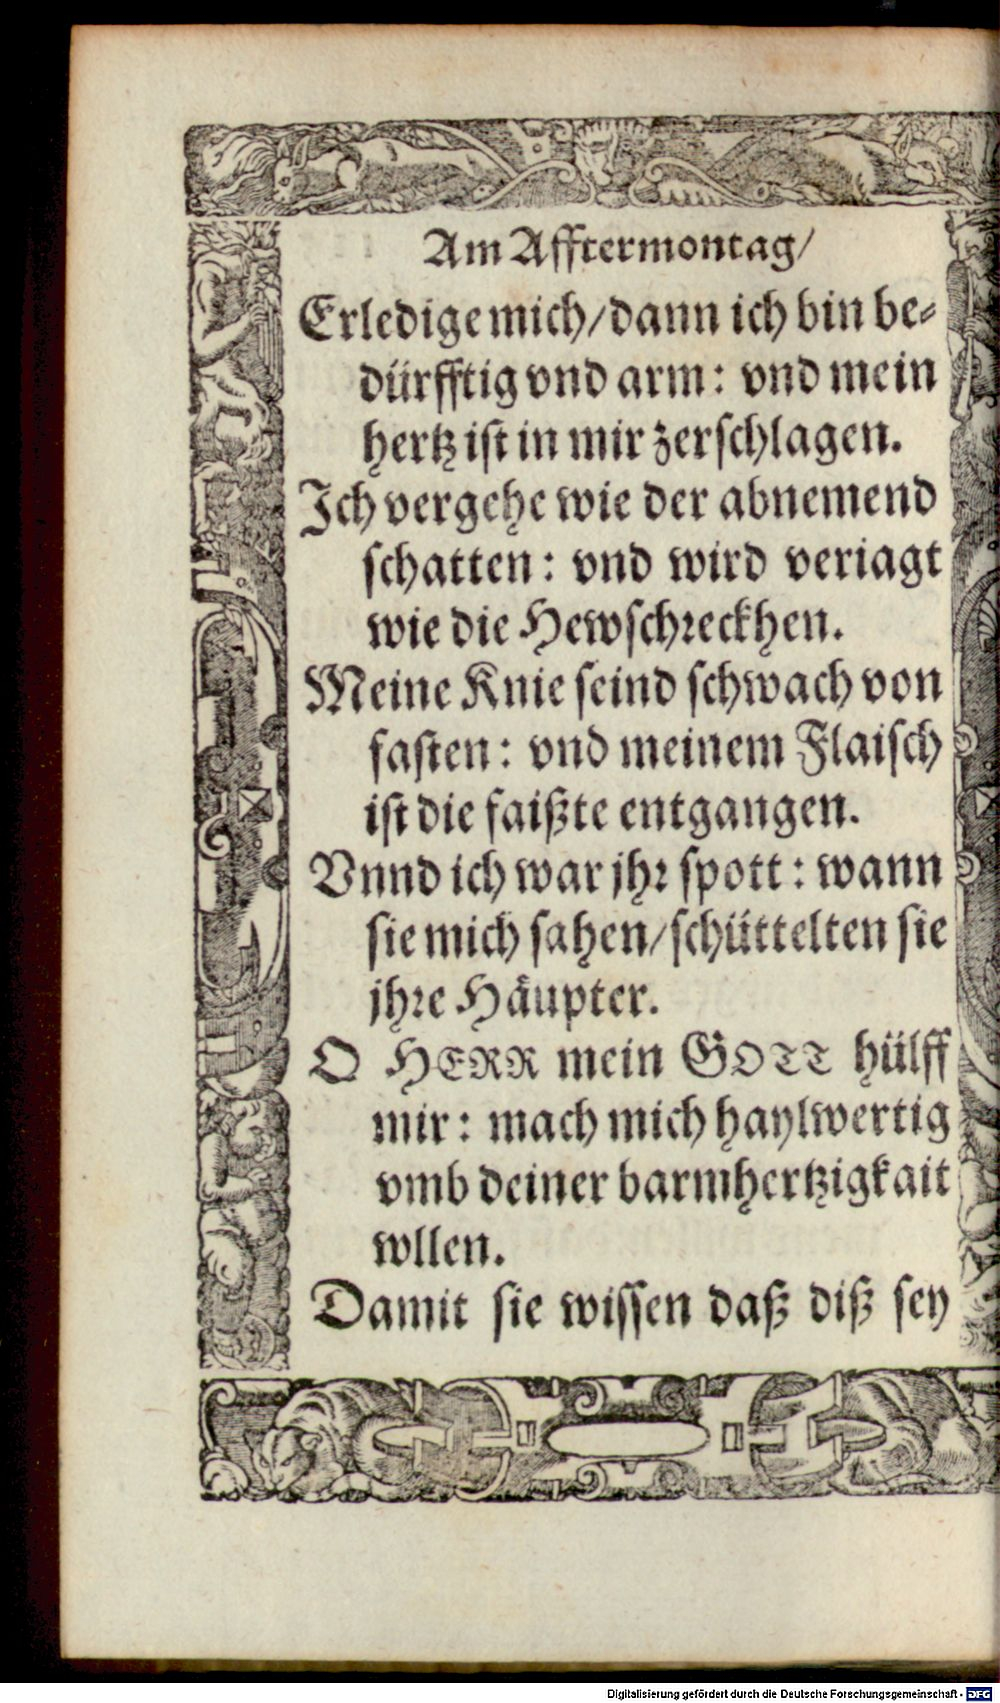 Am Afftermontag/
Erledige mich/dann ich bin be⸗
dürfftig vnd arm: vnd mein
hertz ist in mir zerschlagen.
Ich vergehe wie der abnemend
schatten: vnd wird veriagt
wie die Hewschreckhen.
Meine Knie seind schwach von
fasten: vnd meinem Flaisch
ist die faißte entgangen.
Vnnd ich war jhr spott: wann
sie mich sahen/schüttelten sie
jhre Häupter.
O HERR mein GOTT hülff
mir: mach mich haylwertig
vmb deiner barmhertzigkait
wllen.
Damit sie wissen daß diß sey
Digitalisierung gefördert durch die Deutsche Forschungsgemeinschaft - DFG